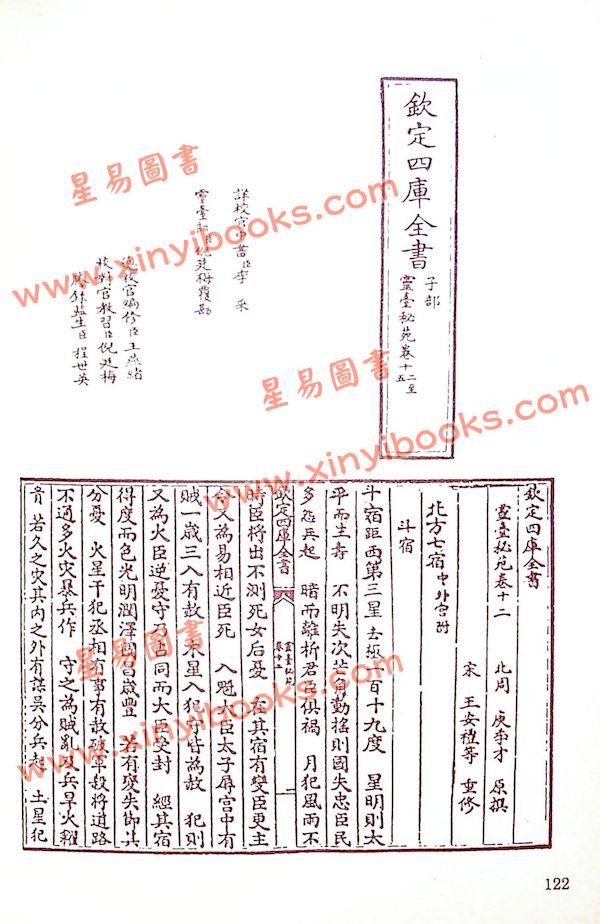 欽定四庫全書
子部
靈臺秘苑卷十二至五
詳校官中書臣李采
靈臺郎臣倪廷梅覆勘
總校官編修臣王燕緒
校對官教習臣倪廷梅
謄錄監生臣程世英
欽定四庫全書
靈臺秘苑卷十二
北周 庾季才 原撰
宋 王安禮等 重修
北方七宿中外官附
斗宿
斗宿距西第三星去極一百十九度 星明則太
平而主壽 不明失次芒角動搖則國失忠臣民
多怨兵起 暗而離析君臣俱禍 月犯風雨不
時臣將出不測死女后憂 在其宿有變臣更主
欽定四庫全書
靈臺秘苑
卷十二
令又為易相近臣死 入魁大臣太子辱宮中有
賊一歲三入有赦 木星入犯守皆為赦 犯則
又為火臣逆憂守乃占同而大臣受封 經其宿
得度而色光明潤澤國昌歲豐 若有變失節其
分憂 火星干犯丞相有事有赦破軍殺將道路
不通多火災暴兵作 守之為賊亂及兵旱火糴
貴 若久之災其內之外有謀吳分兵起 土星犯
星易圖書
www.xinyibooks.com
星易圖書
www.xinyibooks.com
星易圖書
www.xinyibooks.com
122